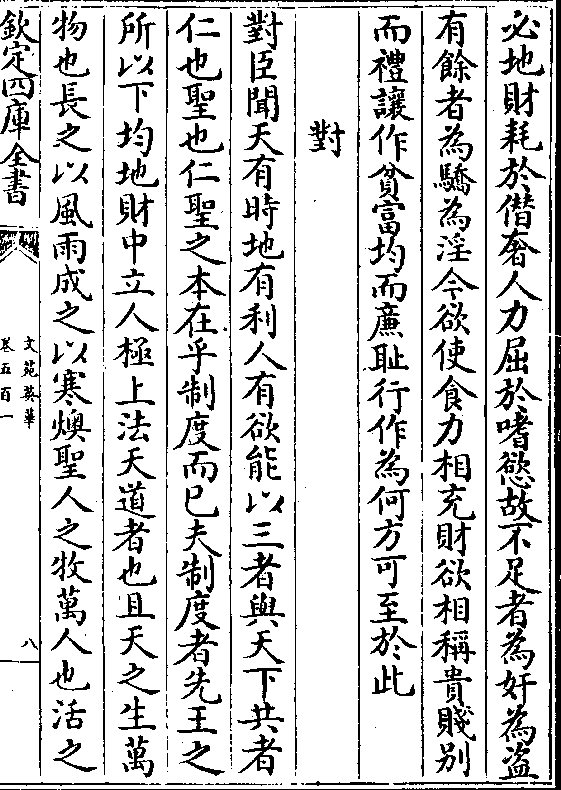 必地財耗於僭奢人力屈於嗜慾故不足者為奸為盗
有餘者為驕為淫今欲使食力相充財欲相稱貴賤别
而禮讓作貧富均而廉耻行作為何方可至於此
對
對臣聞天有時地有利人有欲能以三者與天下共者
仁也聖也仁聖之本在乎制度而已夫制度者先王之
所以下均地財中立人極上法天道者也且天之生萬
物也長之以風雨成之以寒燠聖人之牧萬人也活之
欽定四庫全書
文苑英華
卷五百一
八